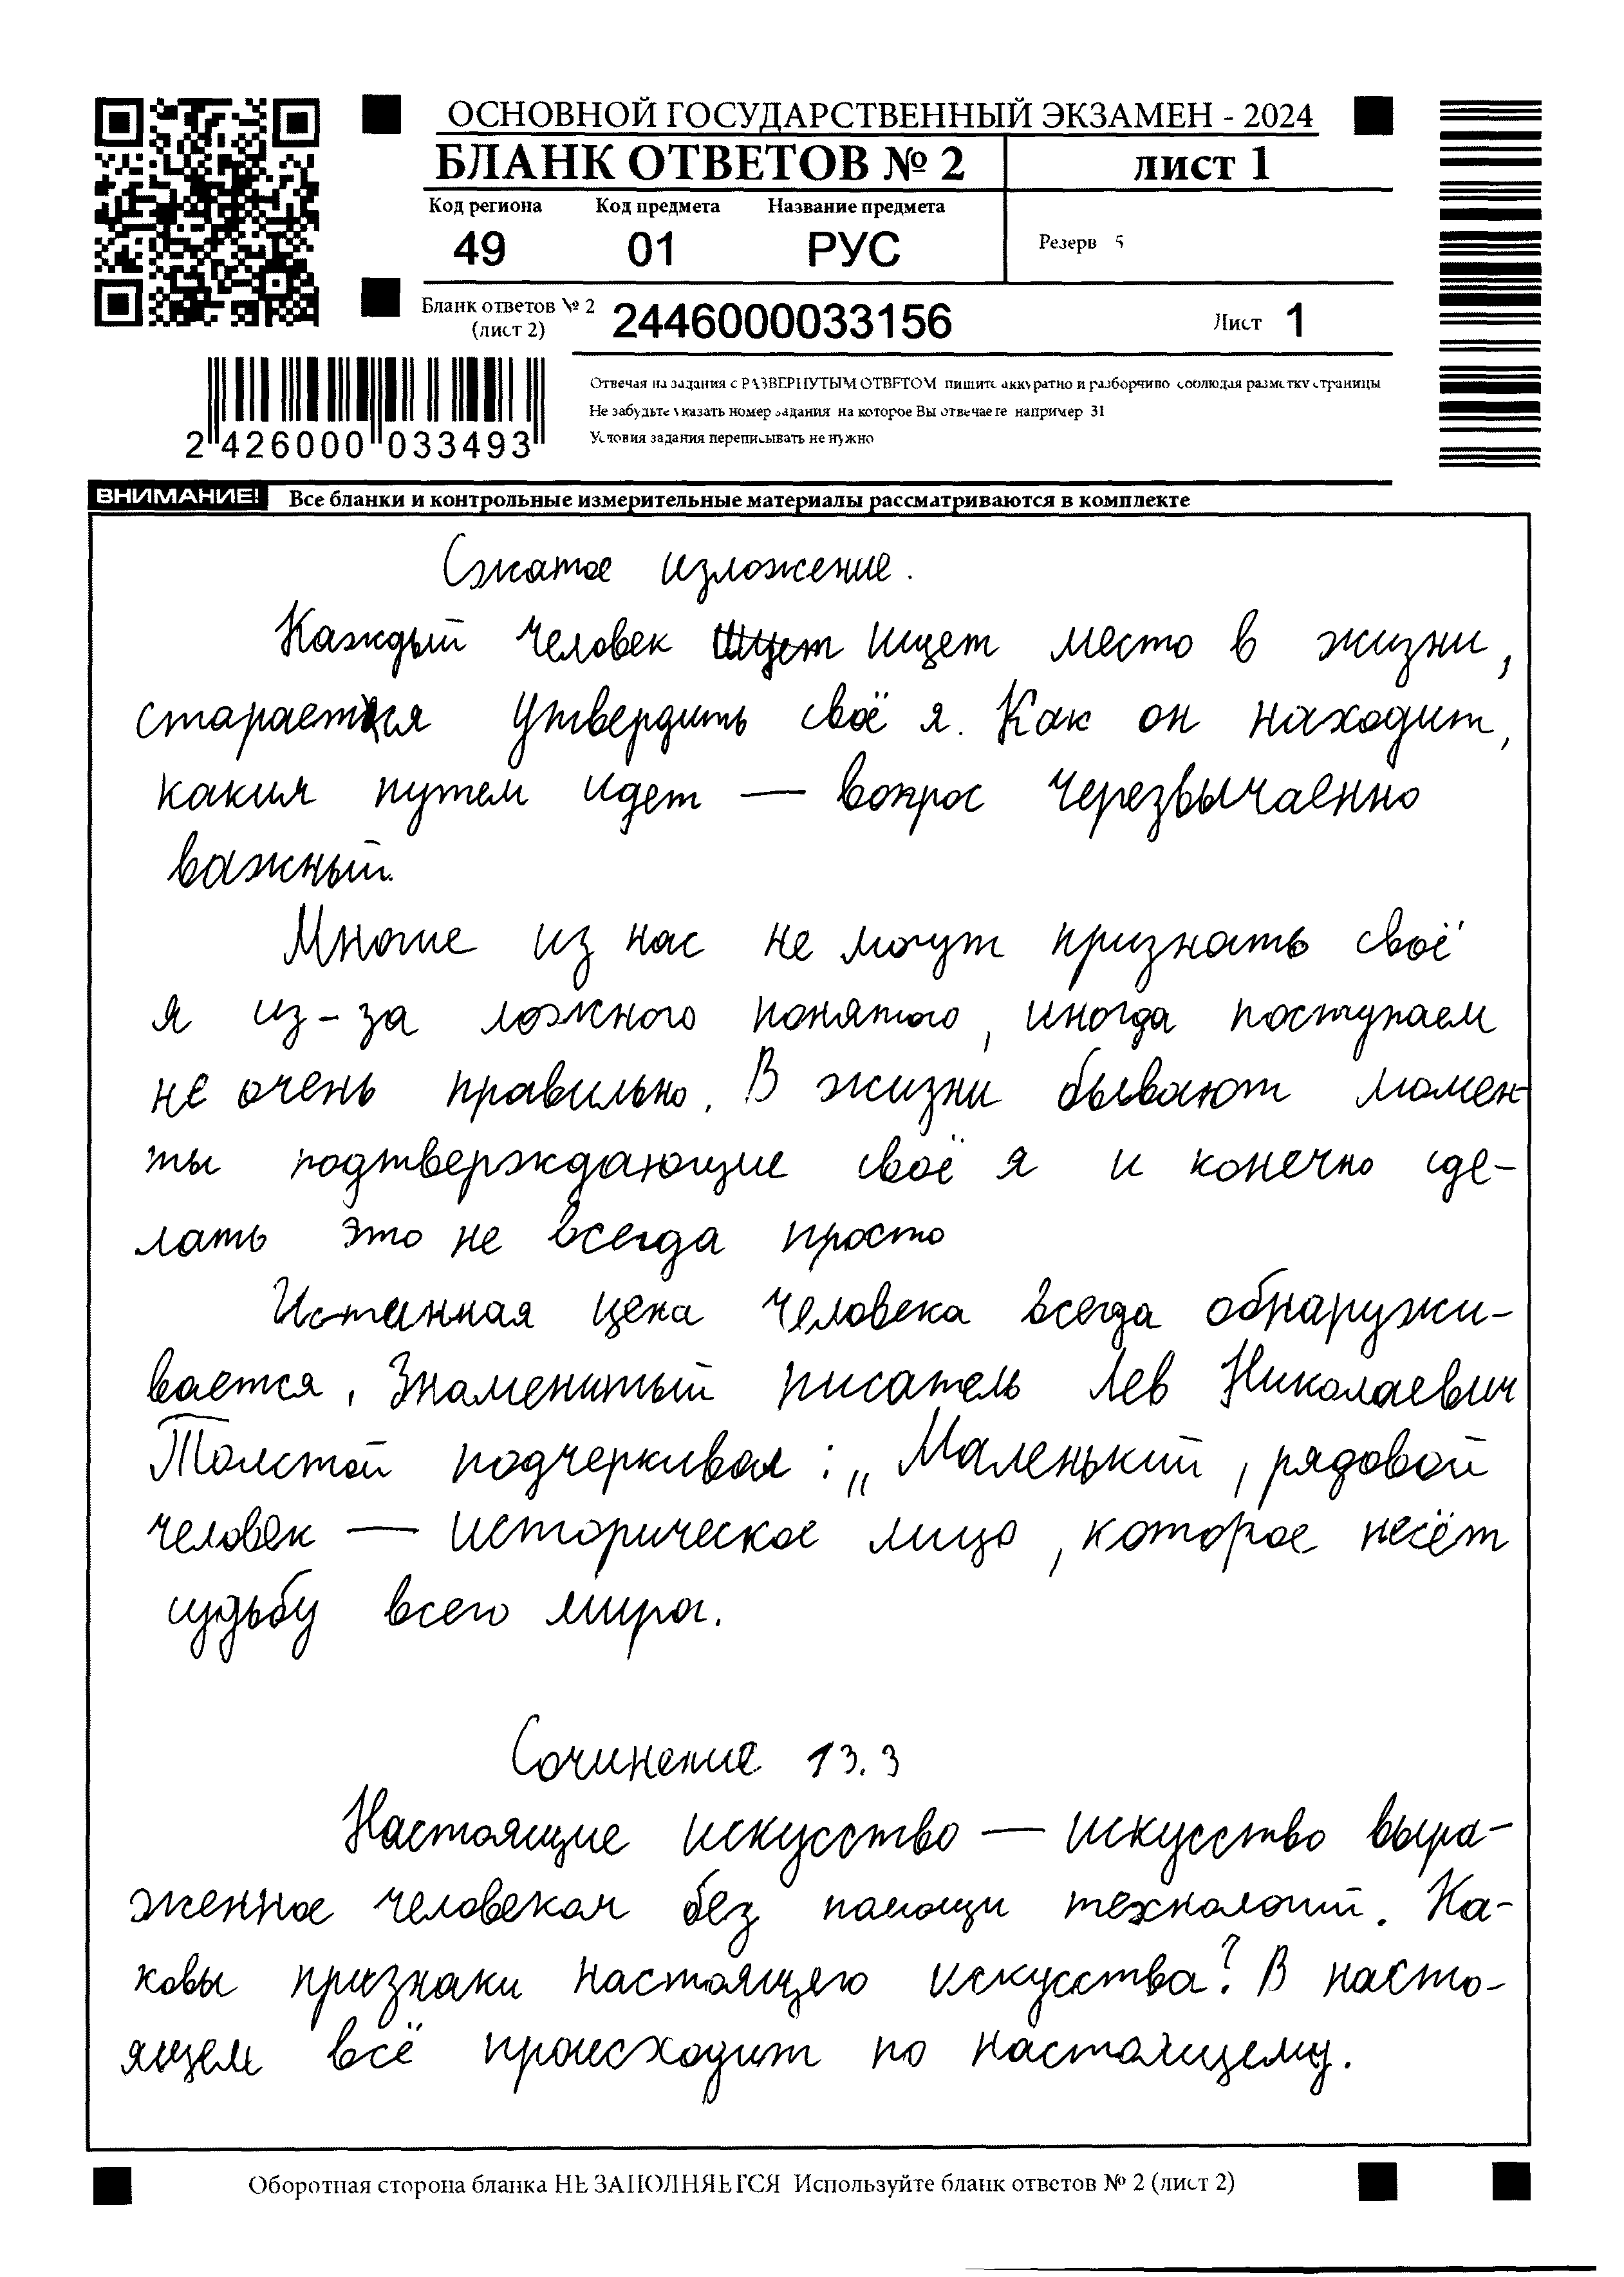 ОСНОВНОЙ ГОСУДАРСТВЕННЫЙ ЭКЗАМЕН - 2024
БЛАНК ОТВЕТОВ № 2
лист 1
Код региона Код предмета Название предмета
49 01 РУС
Резерв 5
Бланк ответов № 2
(лист 2)
2446000033156
Лист 1
2 426000 033493
Отвечая на задания с РАЗВЕРНУТЫМ ОТВЕТОМ пишите аккуратно и разборчиво соблюдая разметку страницы
Не забудьте указать номер задания на которое Вы отвечаете например 31
Условия задания переписывать не нужно
ВНИМАНИЕ! Все бланки и контрольные измерительные материалы рассматриваются в комплекте
Сжатое изложение.
Каждый человек ищет место в жизни,
старается утвердить своё я. Как он находит,
каким путем идет — вопрос черезвычаенно
важный.
Многие из нас не могут признать своё
я из-за ложного понятого, иногда поступаем
не очень правильно. В жизни бывают момен-
ты подтверждающие своё я и конечно сде-
лать это не всегда просто
Истинная цена человека всегда обнаружи-
вается. Знаменитый писатель Лев Николаевич
Толстой подчеркивал: „Маленький, рядовой
человек — историческое лицо, которое несёт
судьбу всего мира.
Сочинение 13.3
Настоящие искусство — искусство выра-
женное человеком без помощи технологий. Ка-
ковы признаки настоящего искусства? В насто-
ящем всё происходит по настоящему.
Оборотная сторона бланка НЕ ЗАПОЛНЯЕТСЯ Используйте бланк ответов № 2 (лист 2)